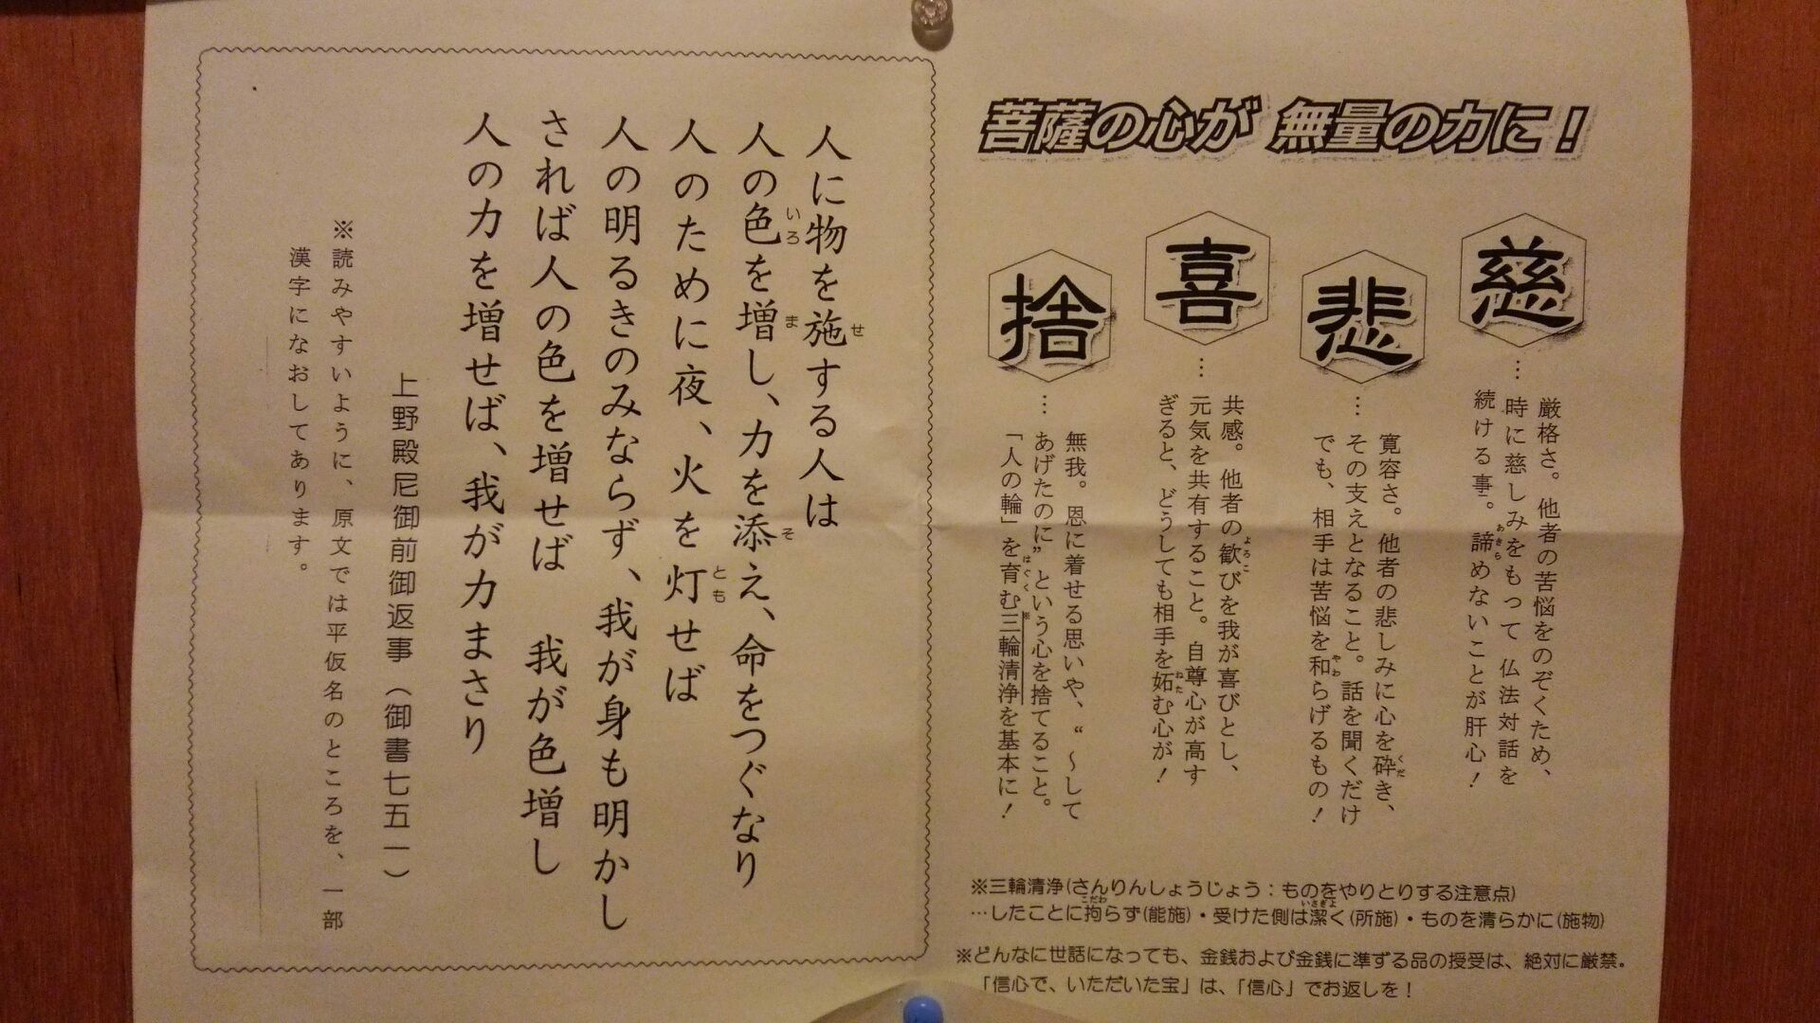 菩薩の心が 無量の力に！
慈
…厳格さ。他者の苦悩をのぞくため、
時に慈しみをもって 仏法対話を
続ける事。諦めないことが肝心！
あきら
悲
…寛容さ。他者の悲しみに心を砕き、
くだ
その支えとなること。話を聞くだけ
でも、相手は苦悩を和らげるもの！
やわ
喜
…共感。他者の歓びを我が喜びとし、
よろこ
元気を共有すること。自尊心が高す
ぎると、どうしても相手を妬む心が！
ねた
捨
…無我。恩に着せる思いや、“～して
あげたのに”という心を捨てること。
「人の輪」を育む三輪清浄を基本に！
はぐく
※
※三輪清浄(さんりんしょうじょう：ものをやりとりする注意点)
…したことに拘らず(能施)・受けた側は潔く(所施)・ものを清らかに(施物)
こだわ
いさぎよ
※どんなに世話になっても、金銭および金銭に準ずる品の授受は、絶対に厳禁。
「信心で、いただいた宝」は、「信心」でお返しを！
人に物を施する人は
せ
人の色を増し、力を添え、命をつぐなり
いろ
ま
そ
人のために夜、火を灯せば
とも
人の明るきのみならず、我が身も明かし
されば人の色を増せば 我が色増し
人の力を増せば、我が力まさり
上野殿尼御前御返事（御書七五一）
※読みやすいように、原文では平仮名のところを、一部
漢字になおしてあります。